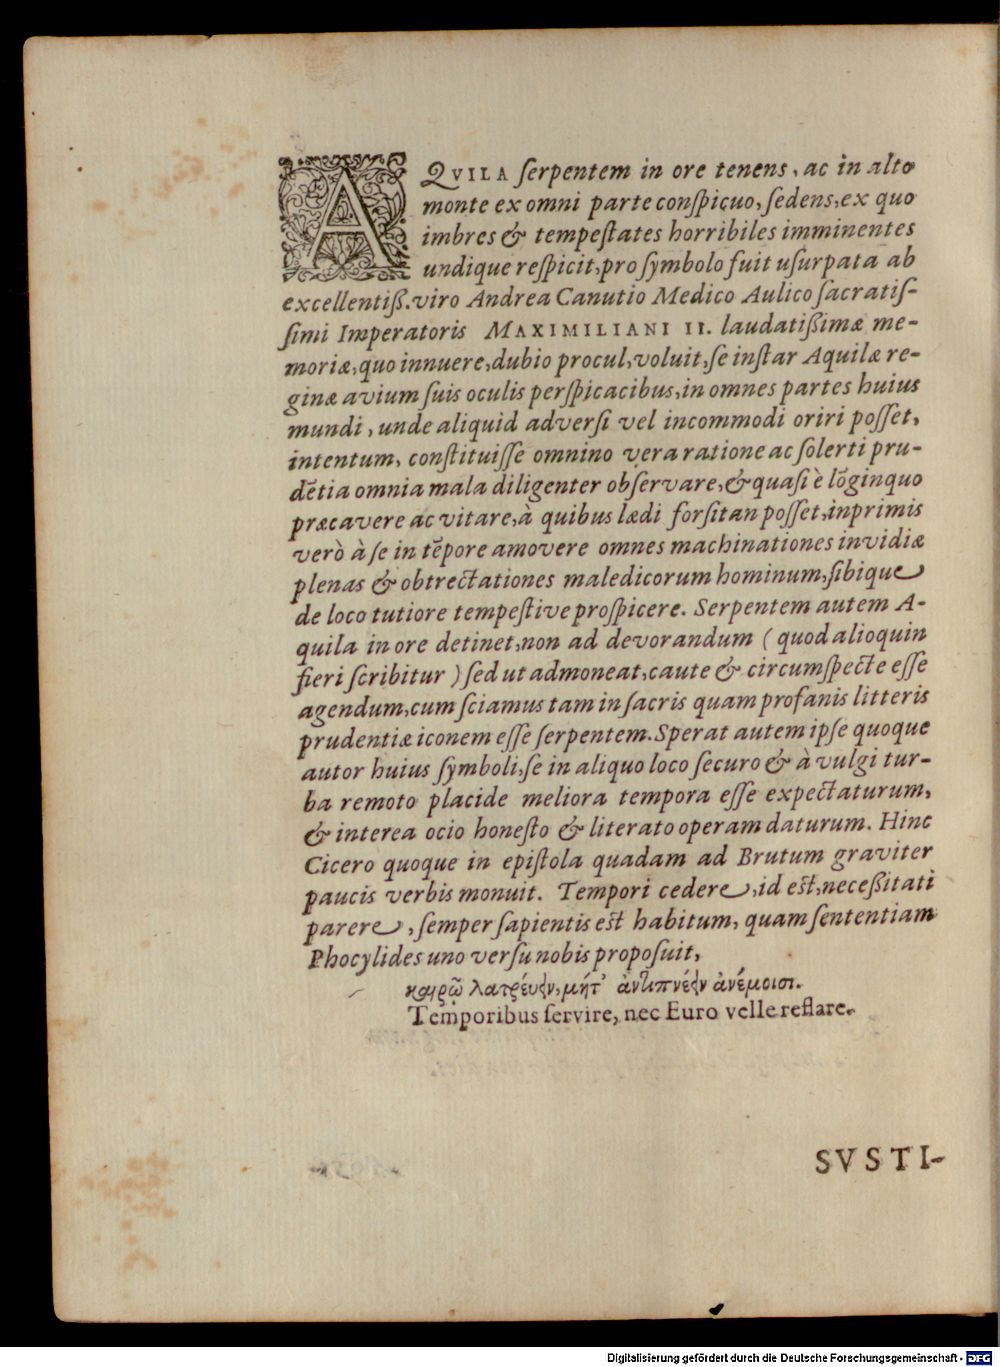 AQVILA ſerpentem in ore tenens, ac in alto
monte ex omni parte conſpicuo, ſedens, ex quo
imbres & tempeſtates horribiles imminentes
undique reſpicit, pro ſymbolo fuit uſurpata ab
excellentiß. viro Andrea Canutio Medico Aulico ſacratiſ-
ſimi Imperatoris MAXIMILIANI II. laudatißimæ me-
moriæ, quo innuere, dubio procul, voluit, ſe inſtar Aquilæ re-
ginæ avium ſuis oculis perſpicacibus, in omnes partes huius
mundi, unde aliquid adverſi vel incommodi oriri poſſet,
intentum, conſtituiſſe omnino vera ratione ac ſolerti pru-
dẽtia omnia mala diligenter obſervare, & quaſi è lõginquo
præcavere ac vitare, à quibus lædi forſitan poſſet, inprimis
verò à ſe in tẽpore amovere omnes machinationes invidiæ
plenas & obtrectationes maledicorum hominum, ſibique
de loco tutiore tempeſtive proſpicere. Serpentem autem A-
quila in ore detinet, non ad devorandum (quod alioquin
fieri ſcribitur) ſed ut admoneat, caute & circumſpecte eſſe
agendum, cum ſciamus tam in ſacris quam profanis litteris
prudentiæ iconem eſſe ſerpentem. Sperat autem ipſe quoque
autor huius ſymboli, ſe in aliquo loco ſecuro & à vulgi tur-
ba remoto placide meliora tempora eſſe expectaturum,
& interea ocio honeſto & literato operam daturum. Hinc
Cicero quoque in epiſtola quadam ad Brutum graviter
paucis verbis monuit. Tempori cedere, id est, neceßitati
parere, ſemper ſapientis est habitum, quam ſententiam
Phocylides uno verſu nobis propoſuit,
καιρῷ λατρέυειν, μήτ' ἀντιπνέειν ἀνέμοισι.
Temporibus ſervire, nec Euro velle reflare.
SVSTI-
Digitalisierung gefördert durch die Deutsche Forschungsgemeinschaft - DFG